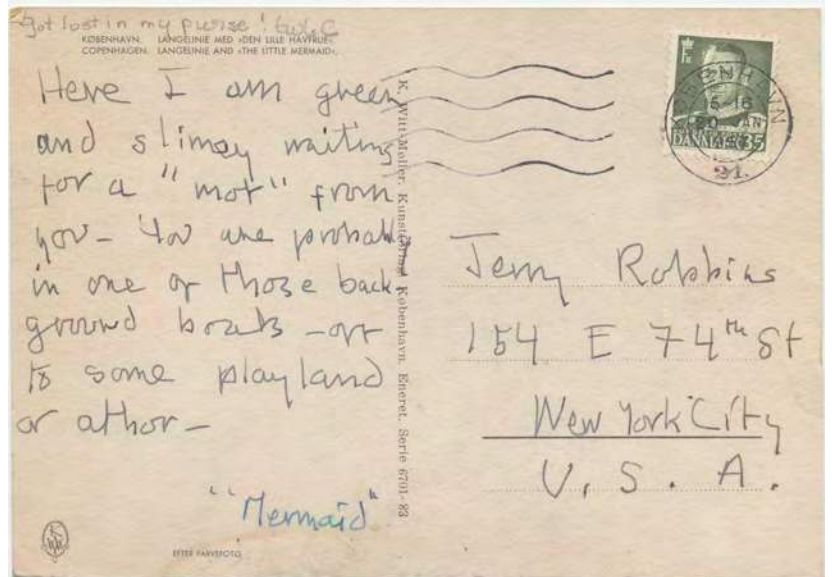 got lost in my purse!
KØBENHAVN. LANGELINIE MED »DEN LILLE HAVFRUE«.
COPENHAGEN. LANGELINIE AND »THE LITTLE MERMAID«.
Here I am green
and slimey waiting
for a "mot" from
you – You are probab
in one of those back
ground boats – off
to some playland
or athor –
"Mermaid"
EFTER FARVEFOTO
K. Witt-Møller, Kunstforlag, København. Eneret. Serie 6701-83
KØBENHAVN
15-16
DANMARK 35
21.
Jerry Robbins
154 E 74th St
New York City
U. S. A.